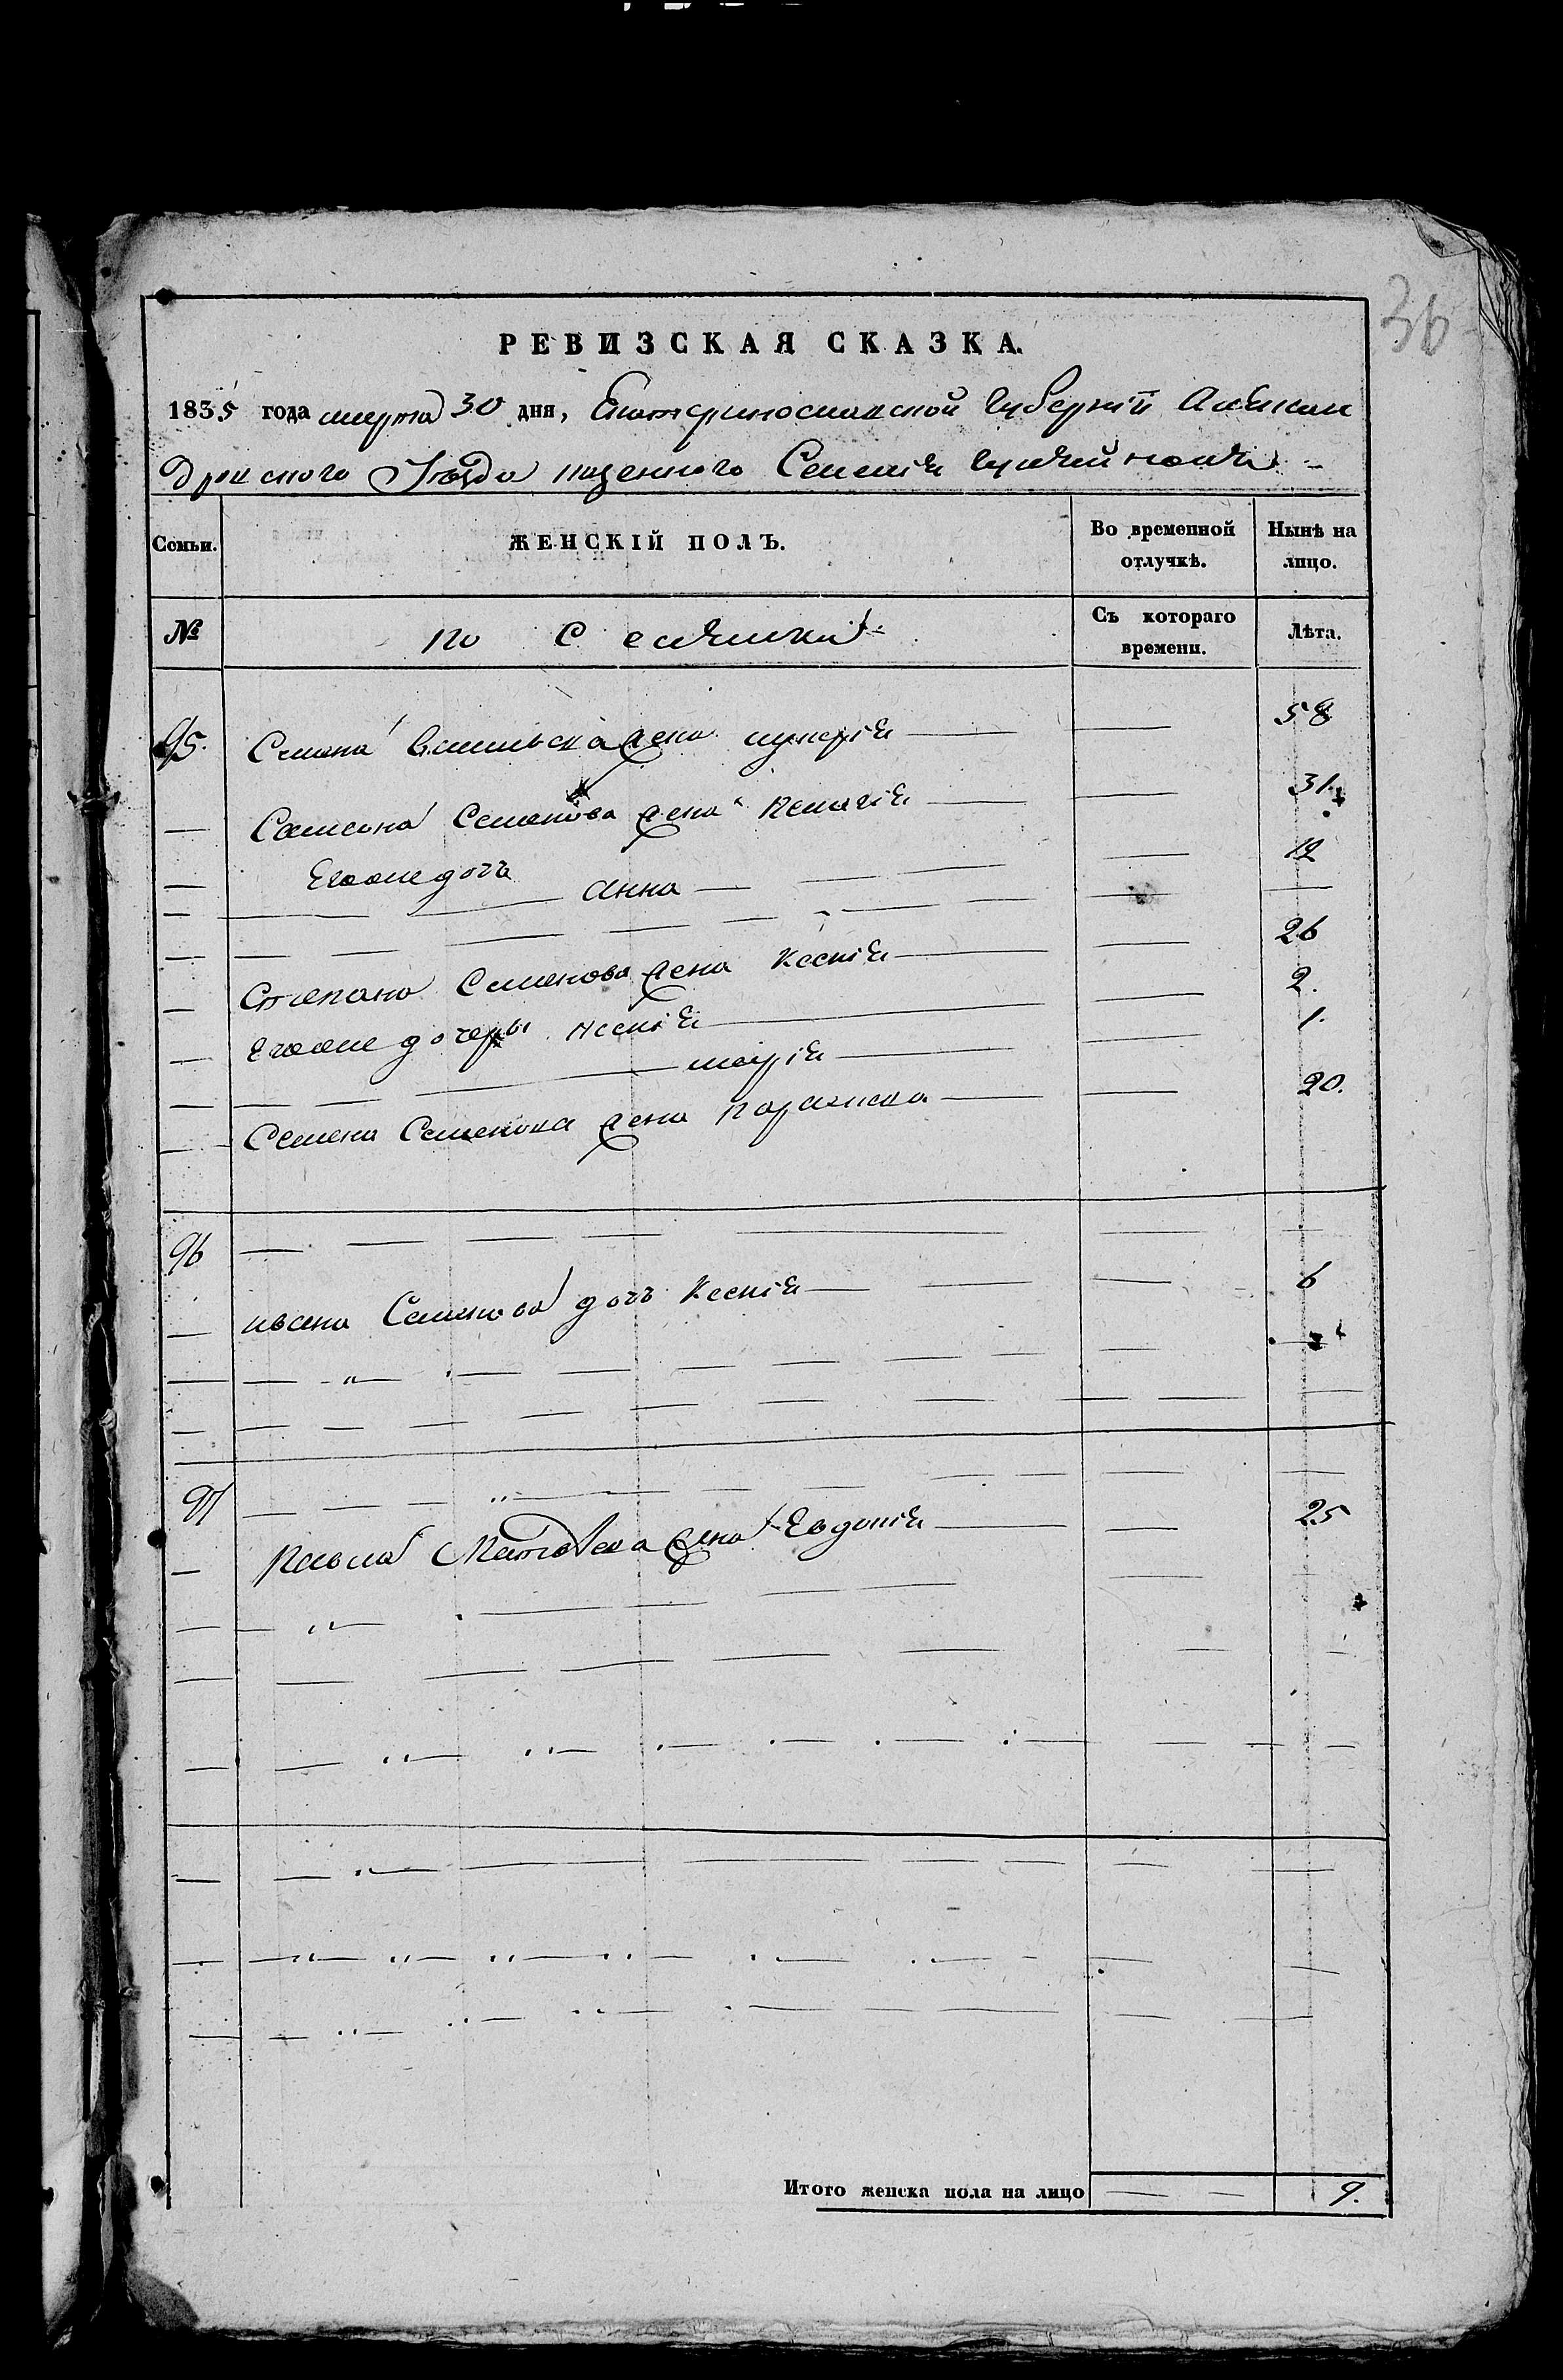 36
РЕВИЗСКАЯ СКАЗКА.
1835 года марта 30 дня, Екатеринославской губерніи Алексан
дровского уезда казенного Селенія
Семьи. ЖЕНСКІЙ ПОЛЪ. Во временной отлучкѣ. Нынѣ на лицо.
№ по Съ котораго времени. Лѣта.
95. Семена Васильева жена — — 58
— Самсона Семенова жена Пелагія — — 31
— Егоже дочь Анна — — 12
— Степана Семенова жена Ксенія — — 26
— Егоже дочеры Ксенія — — 2.
— марія — — 1.
— Семена Семенова жена Параска — — 20.
96
— ивана Семенова дочь Ксенія — — 6
97
— Павла Матвѣева жена Евдокія — — 25
Итого женска пола на лицо — — 9.